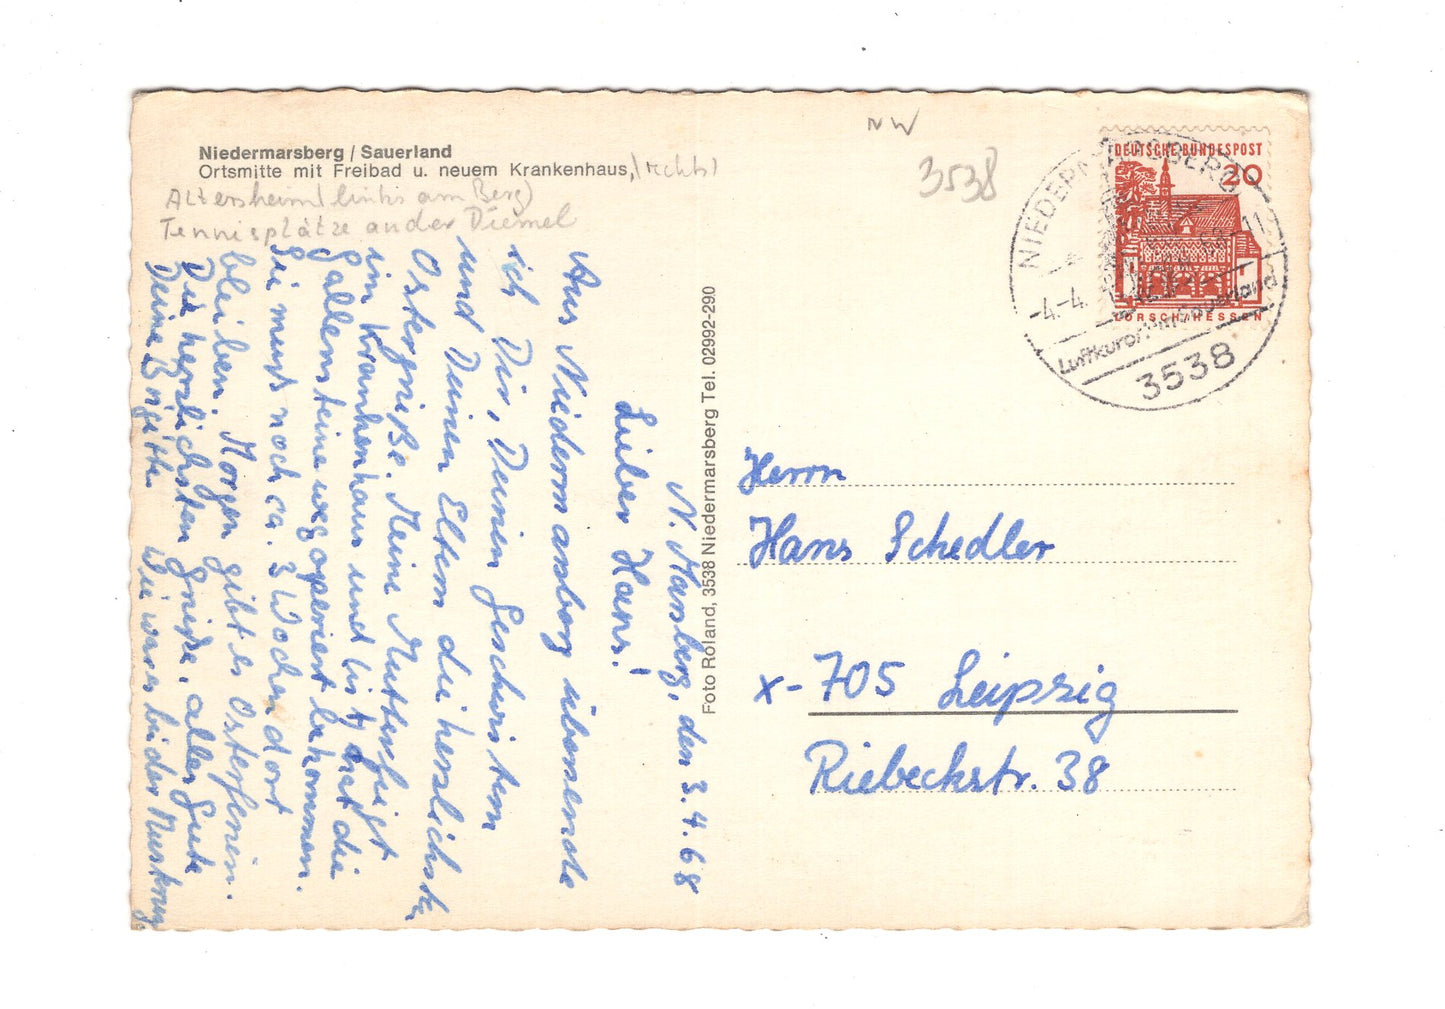 Niedermarsberg / Sauerland
Ortsmitte mit Freibad u. neuem Krankenhaus, (rechts)
Altersheim links am Berg
Tennisplätze an der Diemel
NW
3538
DEUTSCHE BUNDESPOST
20
LORSCH/HESSEN
NIEDERMARSBERG
4.-4. 68-11
Luftkurort im Sauerland
3538
N. Marsberg, den 3.4.68
Lieber Hans!
Aus Niedermarsberg übersende
ich Dir, Deinen Geschwistern
und Deinen Eltern die herzlichsten
Ostergrüße. Meine Mutter liegt
im Krankenhaus und hat die
Gallensteine wegoperiert bekommen.
Sie muß noch ca. 3 Wochen dort
bleiben. Morgen gibt es Osterferien.
Die herzlichsten Grüße, alles Gute
Deine Birgitte Wie war es bei der Musterung
Foto Roland, 3538 Niedermarsberg Tel. 02992-290
Herrn
Hans Schedler
x-705 Leipzig
Riebeckstr. 38